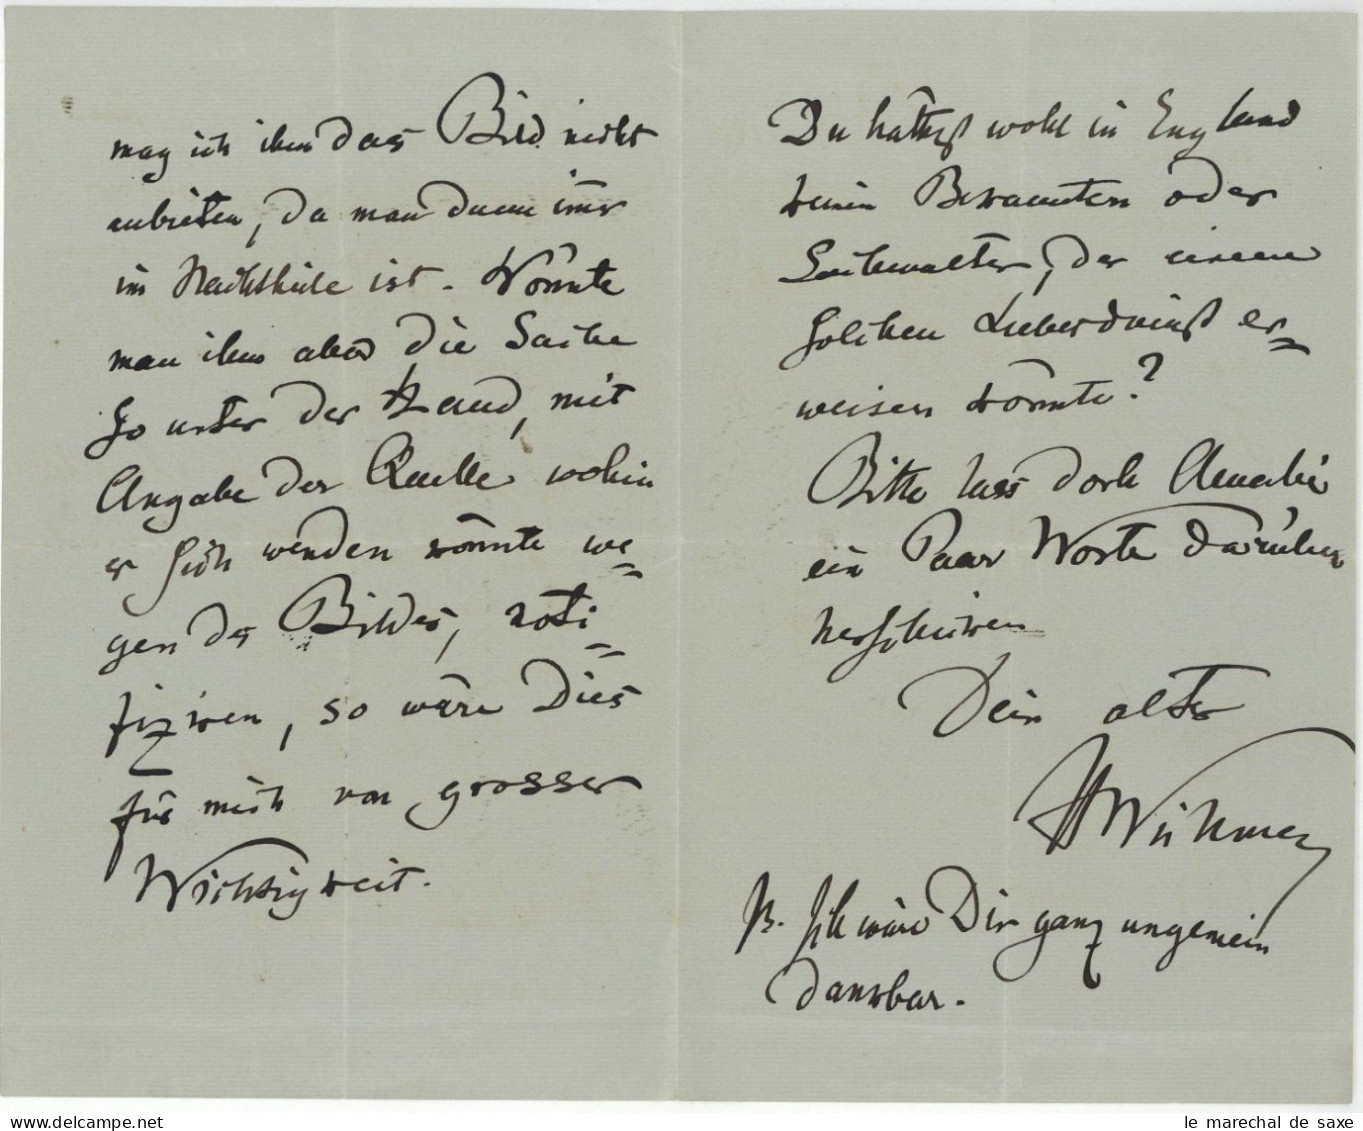 mag ich ihm das Bild nicht
anbieten, da man dann imr
im Nachtheile ist. Könnte
man ihm aber die Sache
so unter der Hand, mit
Angabe der Quelle wohin
er sich wenden könnte we=
gen des Bildes, noti=
fiziren, so wäre Dies
für mich von grosser
Wichtigkeit.
Du hättest wohl in England
keinen Bekannten oder
Sachwalter, der einen
solchen Liebesdienst er=
weisen könnte?
Bitte lass doch Amalie
ein Paar Worte darüber
herschreiben
Dein alter
PS. Ich wäre Dir ganz ungemein
dankbar.
le marechal de saxe
delcampe.net